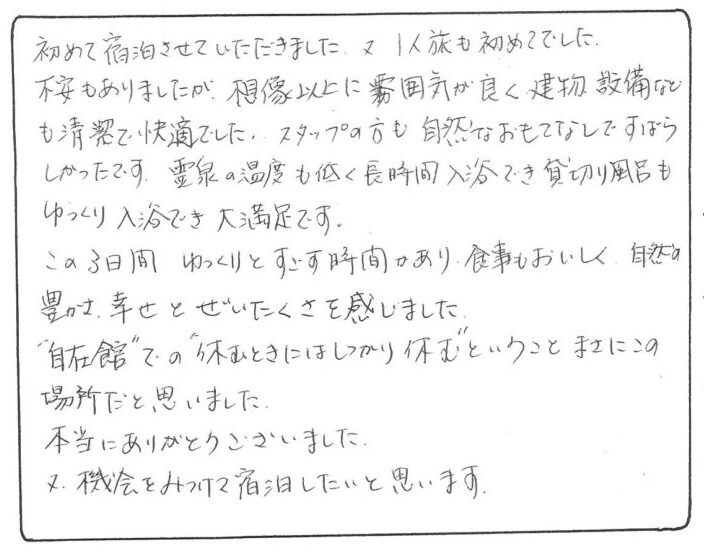 初めて宿泊させていただきました。又 1人旅も初めてでした。
不安もありましたが、想像以上に雰囲気が良く、建物、設備など
も清潔で快適でした。スタッフの方も自然なおもてなしですばら
しかったです。霊泉の温度も低く長時間入浴でき貸切り風呂も
ゆっくり入浴でき大満足です。
この3日間 ゆっくりとすごす時間があり、食事もおいしく、自然の
豊かさ、幸せとぜいたくさを感じました。
"自在館"での"休むときにはしっかり休む"ということ まさにこの
場所だと思いました。
本当にありがとうございました。
又、機会をみつけて宿泊したいと思います。